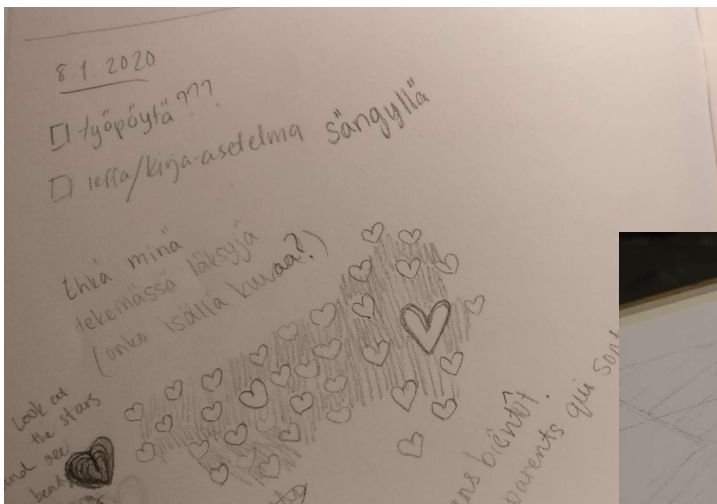 8.1.2020
työpöytä???
leffa/kirja-asetelma sängyllä
Ehkä minä
tekemässä läksyjä
(onko isällä kuvaa?)
Look at
the stars
and see
ens bientôt.
parents qui sont